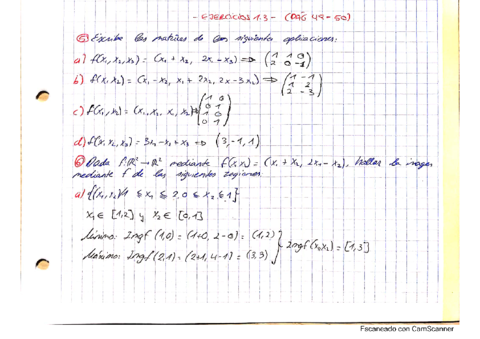 - EJERCICIOS 1.3 - (PÁG 49-50)
⑤ Escribe las matrices de las siguientes aplicaciones:
a) f(x₁,x₂,x₃) = (x₁ + x₂, 2x₁ - x₃) ⇒ (1 1 0 / 2 0 -1)
b) f(x₁,x₂) = (x₁ - x₂, x₁ + 2x₂, 2x₁ - 3x₂) ⇒ (1 -1 / 1 2 / 2 -3)
c) f(x₁,x₂) = (x₁,x₂, x₁,x₂) ⇒ (1 0 / 0 1 / 1 0 / 0 1)
d) f(x₁,x₂,x₃) = 3x₁ - x₂ + x₃ ⇒ (3,-1,1)
⑥ Dada f:ℝ²→ℝ² mediante f(x₁,x₂) = (x₁ + x₂, 2x₁ - x₂), hallar la imagen
mediante f de las siguientes regiones
a) {(x₁,x₂)/1 ≤ x₁ ≤ 2, 0 ≤ x₂ ≤ 1}
x₁ ∈ [1,2] y x₂ ∈ [0,1]
Mínimo: Img f (1,0) = (1+0, 2-0) = (1,2)
Máximo: Img f (2,1) = (2+1, 4-1) = (3,3)
Img f(x₁,x₂) = [1,3]
Escaneado con CamScanner